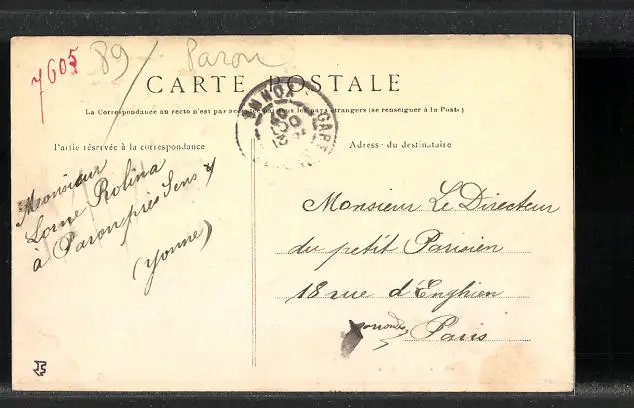 7605
89/ Paron
CARTE POSTALE
La Correspondance au recto n'est par acceptée par tous les pays étrangers (se renseigner à la Poste)
Partie réservée à la correspondance
Adress· du destinataire
Monsieur
Lorne Rolina
à Paron près Sens
(Yonne)
GARE
YONNE
Monsieur Le Directeur
du petit Parisien
18 rue d'Enghien
Paris